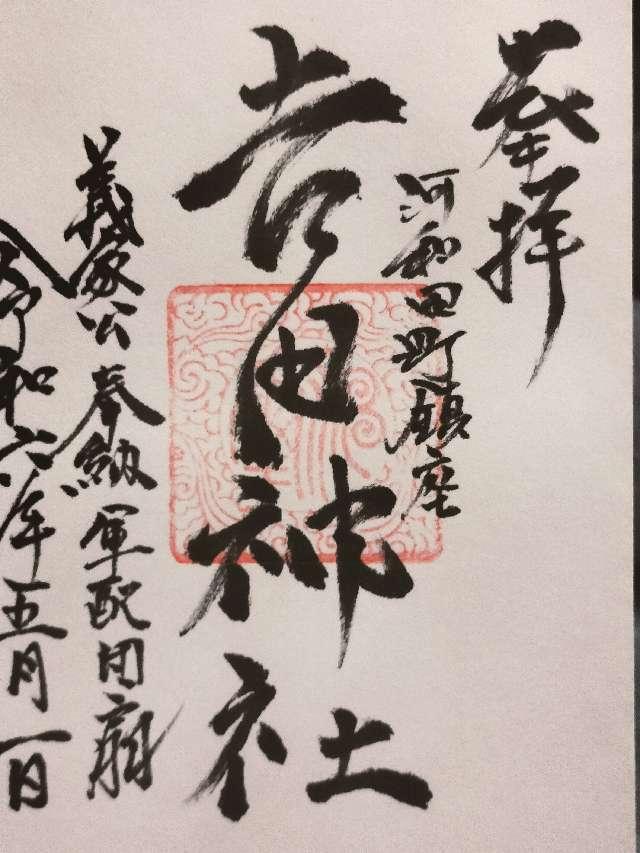 奉拝
河和田町鎮座
吉田神社
義家公奉納軍配団扇
令和六年五月一日